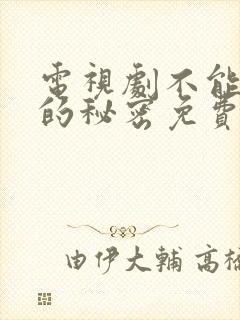 電視劇不能
的秘密免費
由伊大輔 高橋